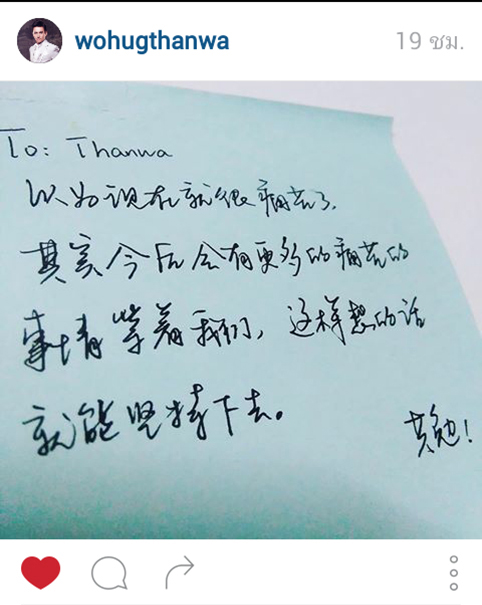 wohugthanwa
19 ชม.
To: Thanwa
以为现在就很痛苦了.
其实今后会有更多的痛苦的
事情等着我们, 这样想的话
就能坚持下去。
共勉!